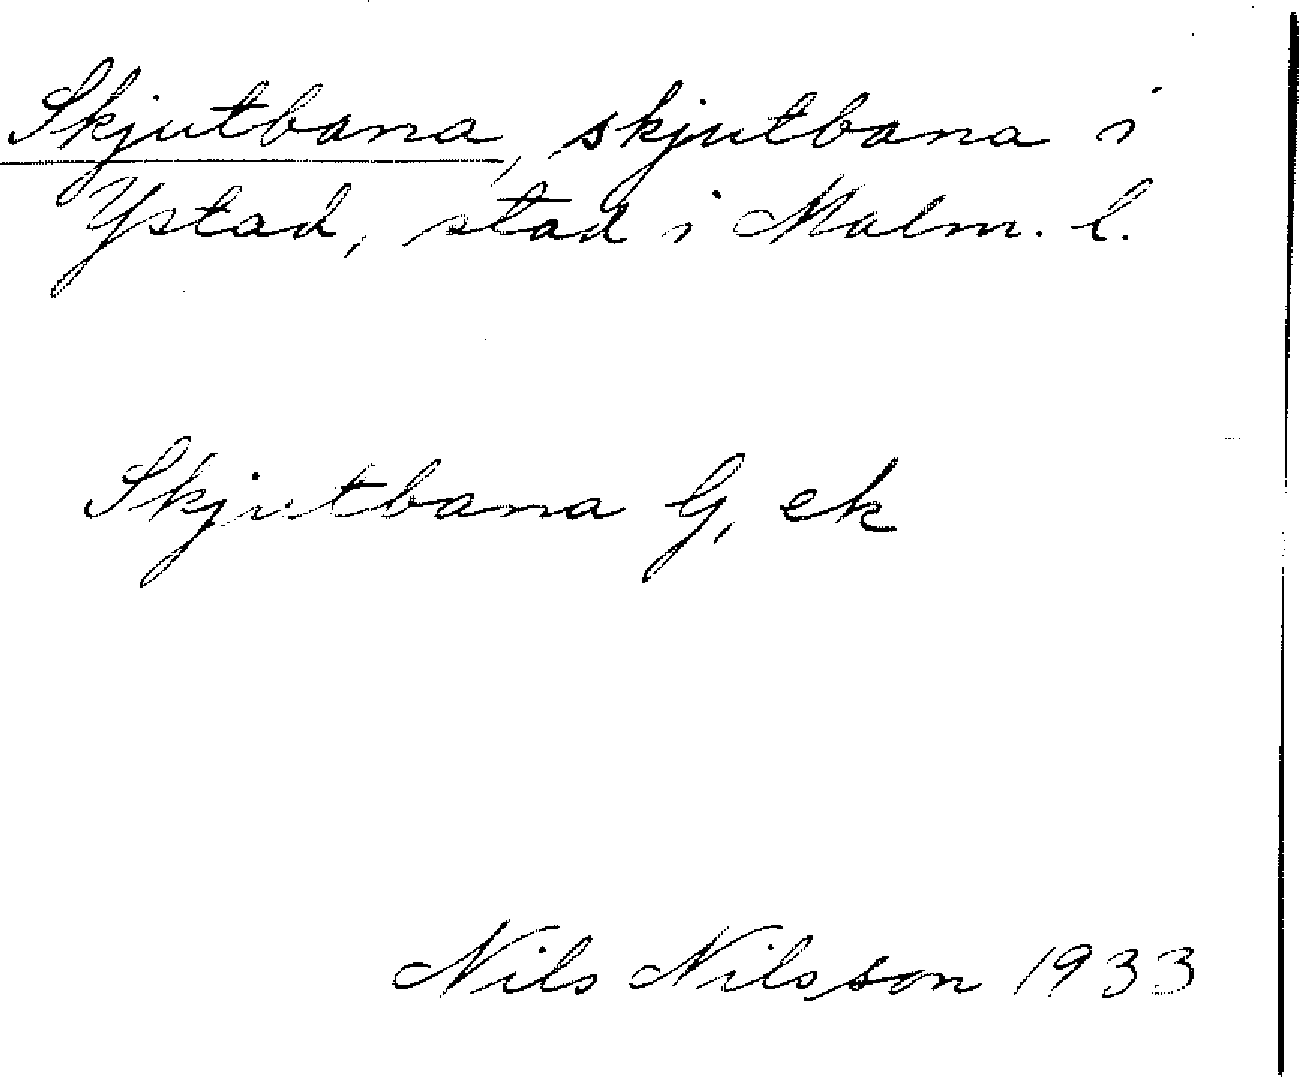 Skjutbana, skjutbana i
Ystad, stad i Malm. l.
Skjutbana G, ek
Nils Nilsson 1933